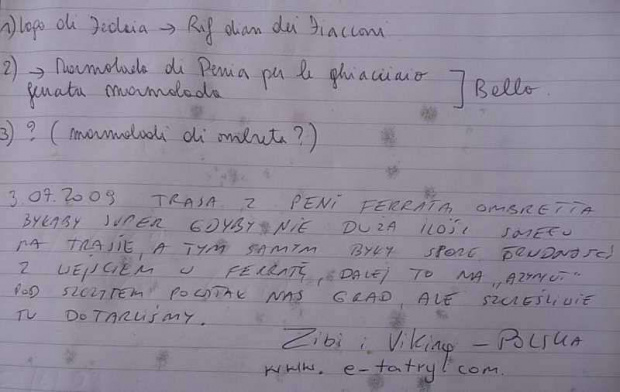 1) lopo di Fedaia → Rif dian dei Fiacconi
2) → Marmolada di Penia per le ghiacciaio
ferrata marmolada ] Bello.
3) ? (marmoladi di ombreta?)
3.07.2009 TRASA Z PENI FERRATĄ OMBRETTA
BYŁABY SUPER GDYBY NIE DUŻA ILOŚĆ ŚNIEGU
NA TRASIE, A TYM SAMYM BYŁY SPORE TRUDNOŚCI
Z WEJŚCIEM W FERRATĘ, DALEJ TO NA „AZYMUT"
POD SZCZYTEM POWITAŁ NAS GRAD, ALE SZCZĘŚLIWIE
TU DOTARLIŚMY.
Zibi i Viking – POLSKA
www. e-tatry.com.